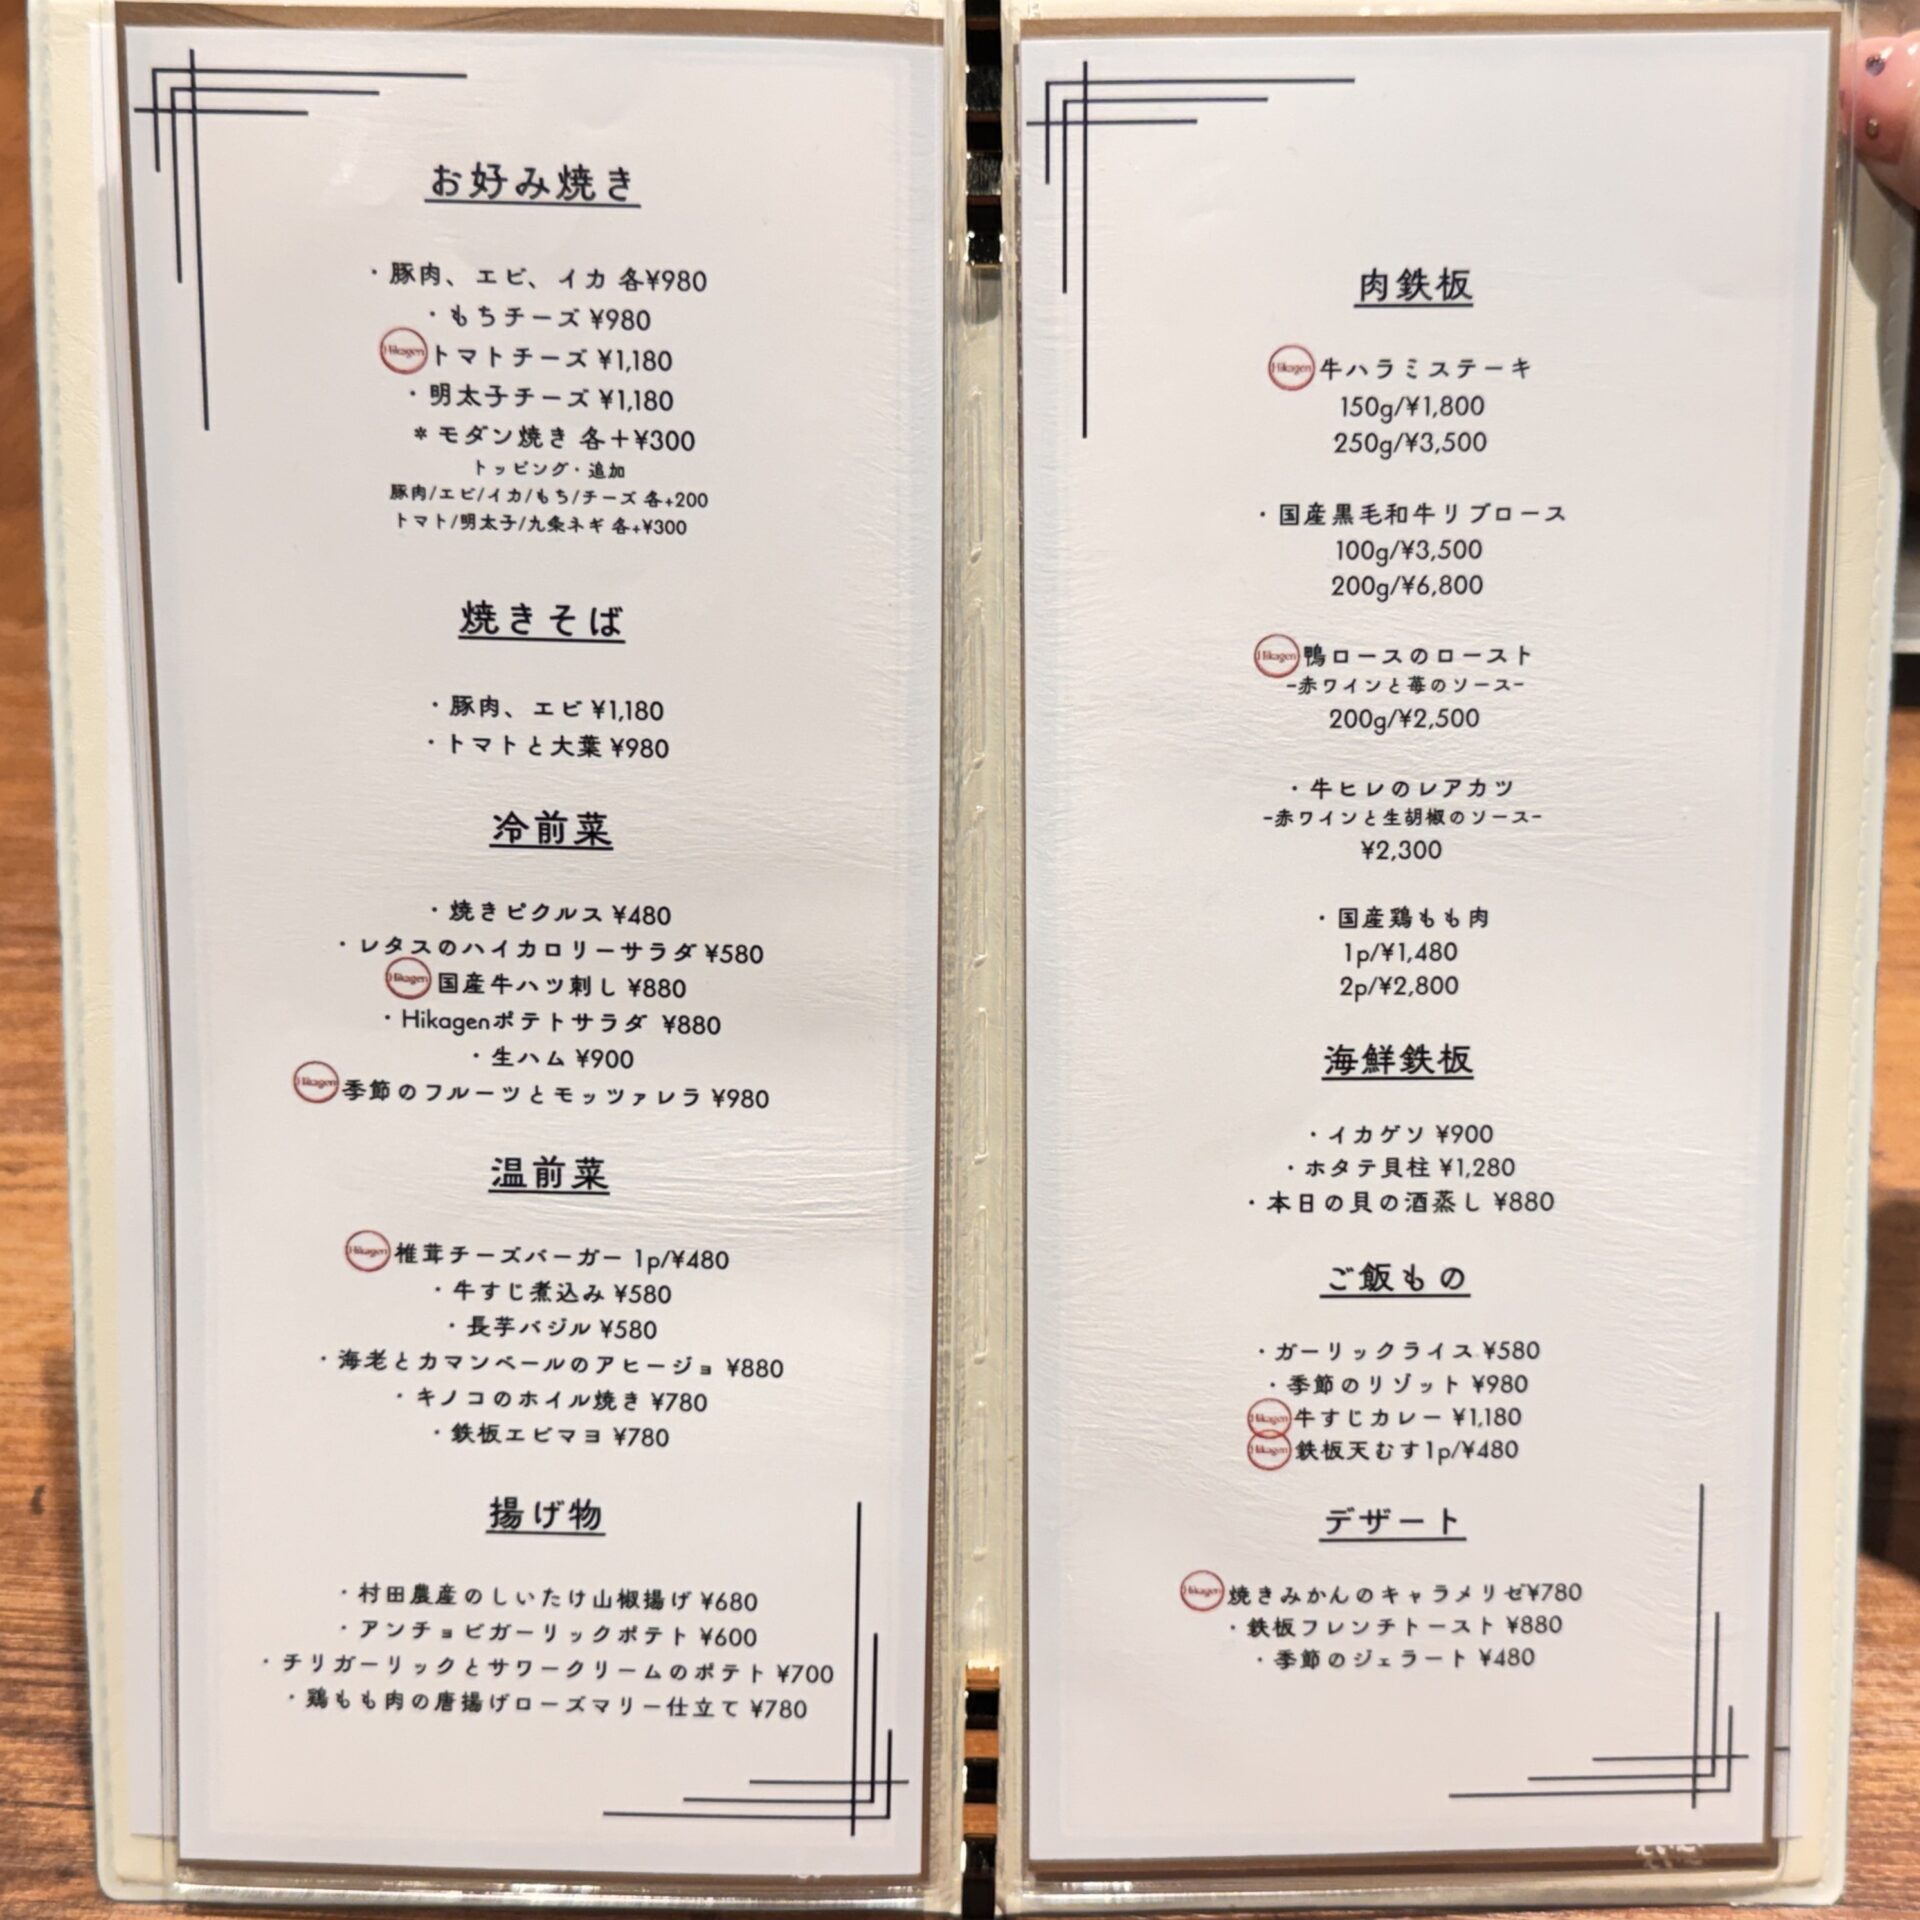 お好み焼き
・豚肉、エビ、イカ 各¥980
・もちチーズ ¥980
Hikagen トマトチーズ ¥1,180
・明太子チーズ ¥1,180
＊モダン焼き 各＋¥300
トッピング・追加
豚肉/エビ/イカ/もち/チーズ 各+200
トマト/明太子/九条ネギ 各+¥300
焼きそば
・豚肉、エビ ¥1,180
・トマトと大葉 ¥980
冷前菜
・焼きピクルス ¥480
・レタスのハイカロリーサラダ ¥580
Hikagen 国産牛ハツ刺し ¥880
・Hikagenポテトサラダ ¥880
・生ハム ¥900
Hikagen 季節のフルーツとモッツァレラ ¥980
温前菜
Hikagen 椎茸チーズバーガー 1p/¥480
・牛すじ煮込み ¥580
・長芋バジル ¥580
・海老とカマンベールのアヒージョ ¥880
・キノコのホイル焼き ¥780
・鉄板エビマヨ ¥780
揚げ物
・村田農産のしいたけ山椒揚げ ¥680
・アンチョビガーリックポテト ¥600
・チリガーリックとサワークリームのポテト ¥700
・鶏もも肉の唐揚げローズマリー仕立て ¥780
肉鉄板
Hikagen 牛ハラミステーキ
150g/¥1,800
250g/¥3,500
・国産黒毛和牛リブロース
100g/¥3,500
200g/¥6,800
Hikagen 鴨ロースのロースト
-赤ワインと苺のソース-
200g/¥2,500
・牛ヒレのレアカツ
-赤ワインと生胡椒のソース-
¥2,300
・国産鶏もも肉
1p/¥1,480
2p/¥2,800
海鮮鉄板
・イカゲソ ¥900
・ホタテ貝柱 ¥1,280
・本日の貝の酒蒸し ¥880
ご飯もの
・ガーリックライス ¥580
・季節のリゾット ¥980
Hikagen 牛すじカレー ¥1,180
Hikagen 鉄板天むす1p/¥480
デザート
Hikagen 焼きみかんのキャラメリゼ¥780
・鉄板フレンチトースト ¥880
・季節のジェラート ¥480